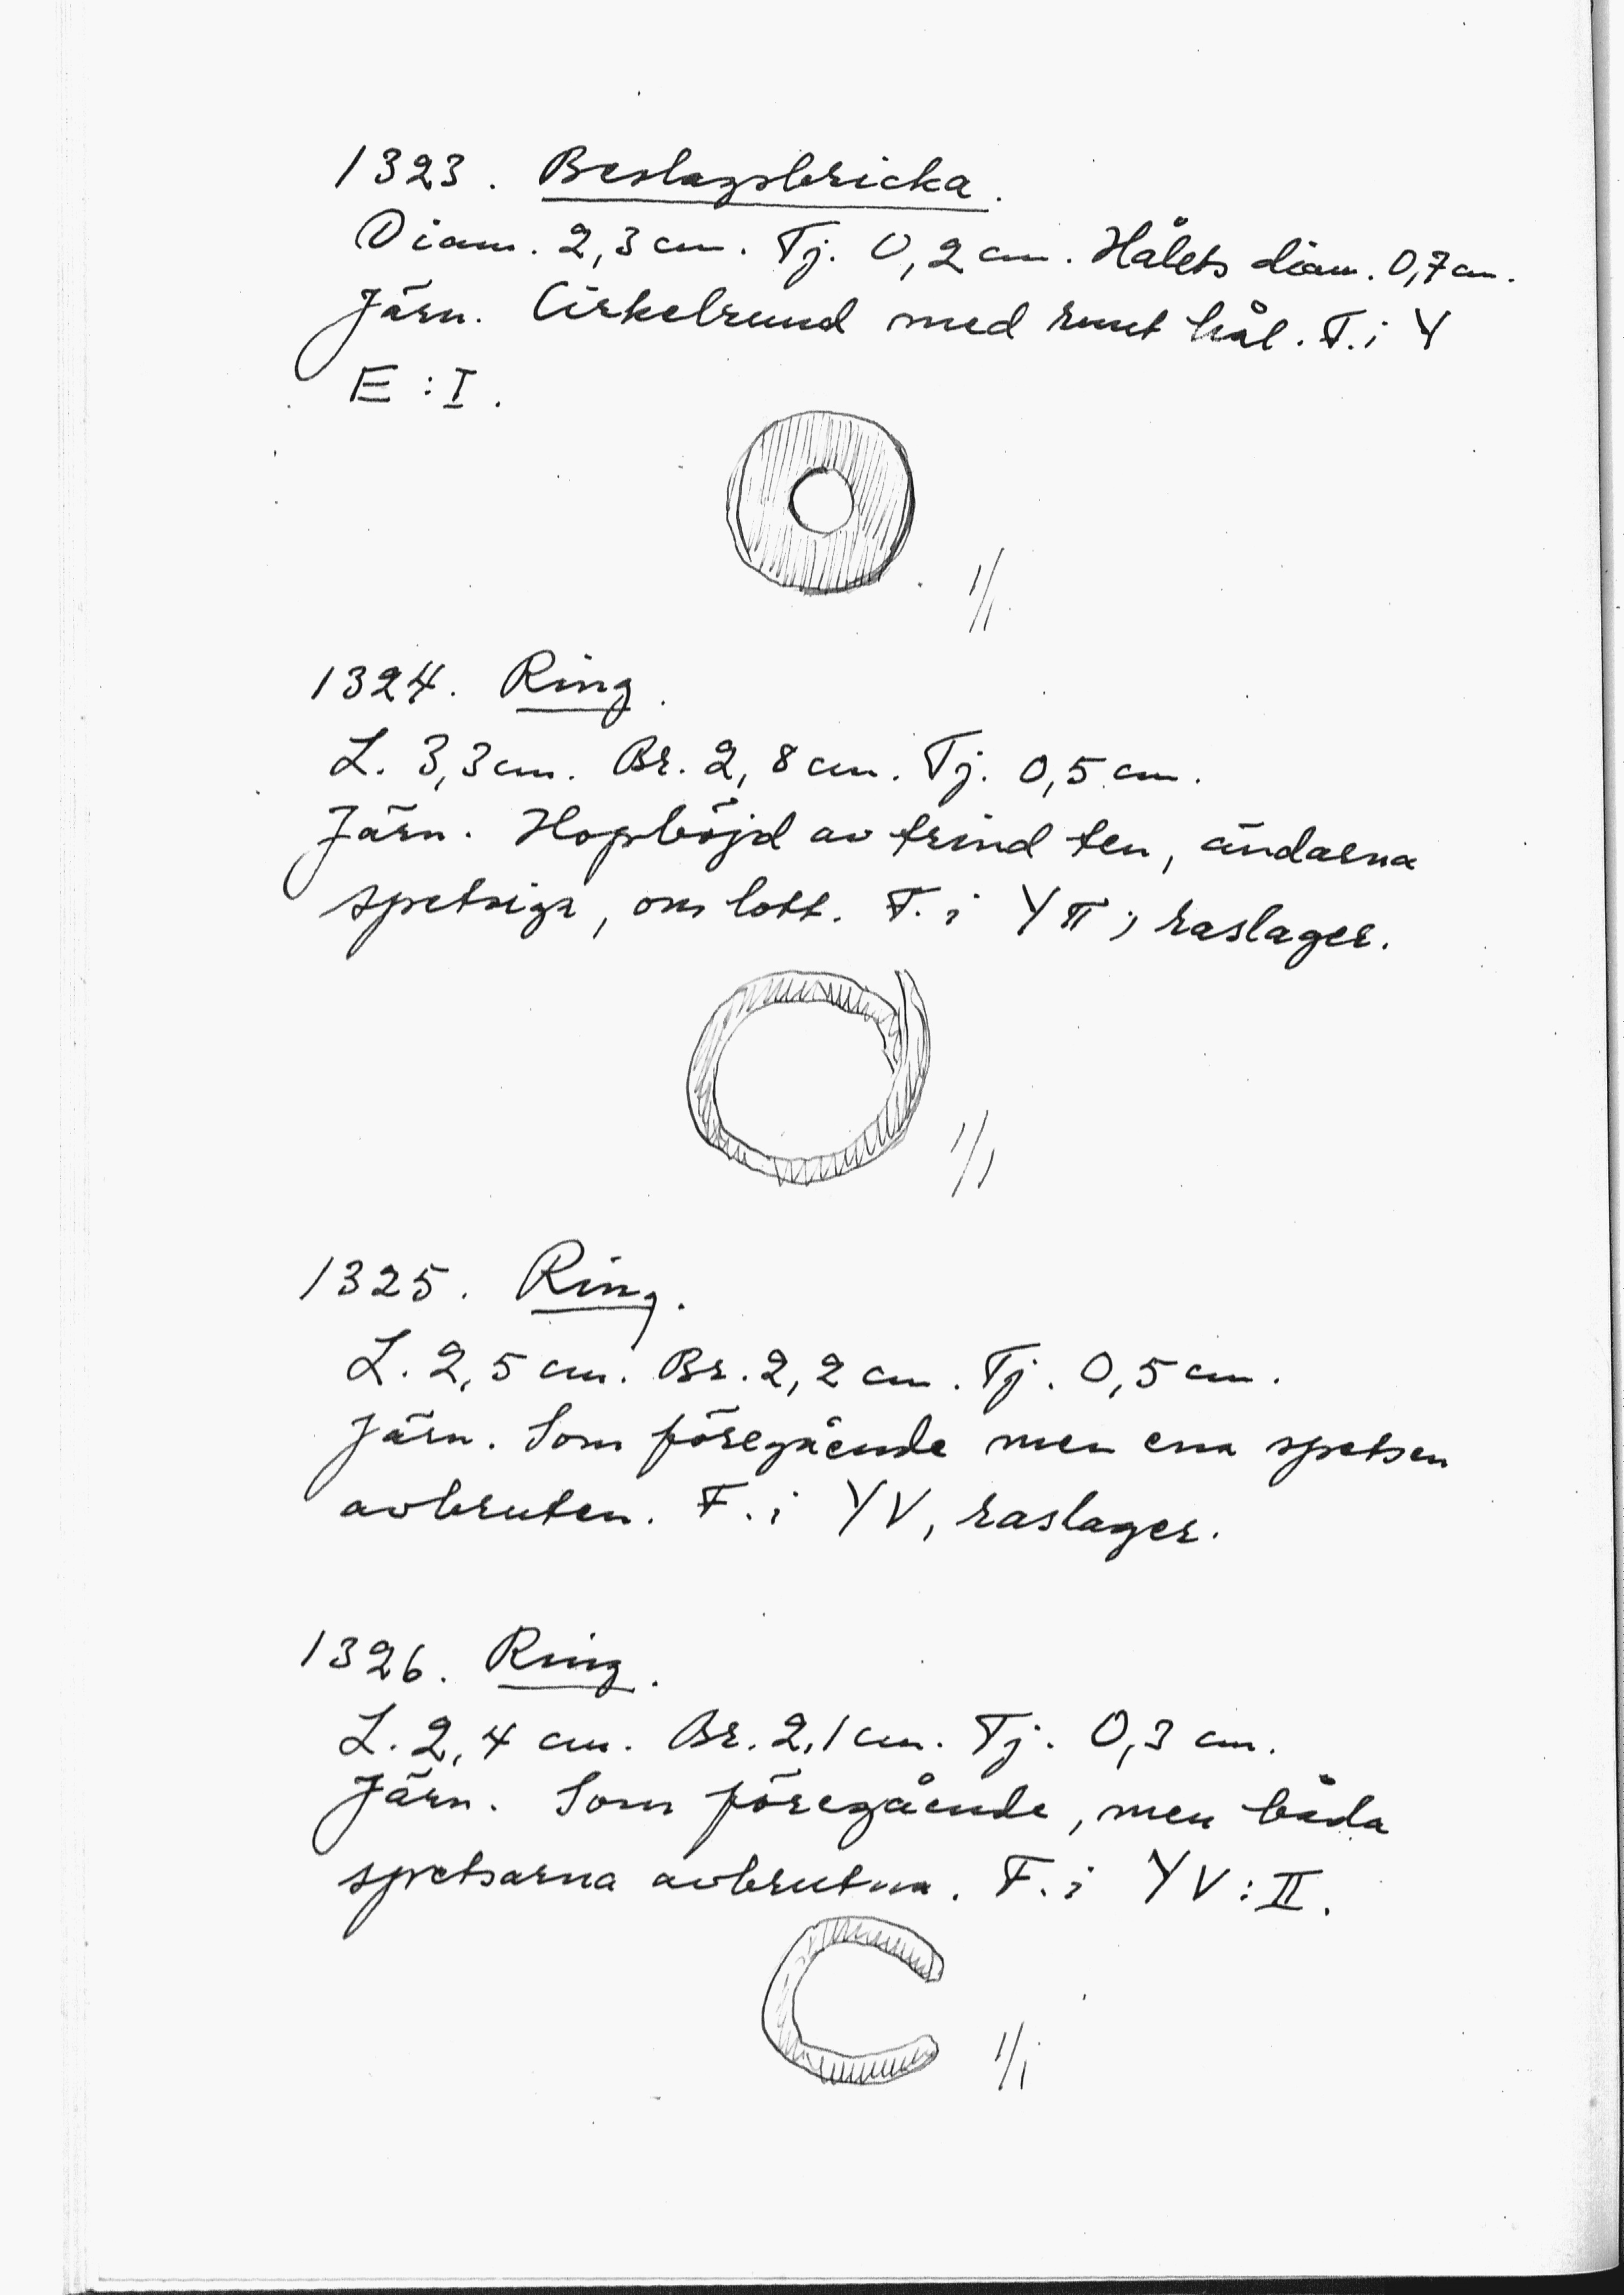 1323. Beslagsbricka.
Diam. 2,3 cm. Tj. 0,2 cm. Hålets diam. 0,7 cm.
Järn. Cirkelrund med runt hål. F. i Y
E : I.
1/1
1324. Ring.
L. 3,3 cm. Br. 2,8 cm. Tj. 0,5 cm.
Järn. Hopböjd av trind ten, ändarna
spetsiga, omlott. F. i Y π ; raslager.
1/1
1325. Ring.
L. 2,5 cm. Br. 2,2 cm. Tj. 0,5 cm.
Järn. Som föregående men ena spetsen
avbruten. F. i Y V, raslager.
1326. Ring.
L. 2,4 cm. Br. 2,1 cm. Tj. 0,3 cm.
Järn. Som föregående, men båda
spetsarna avbrutna. F. i Y V : II.
1/1